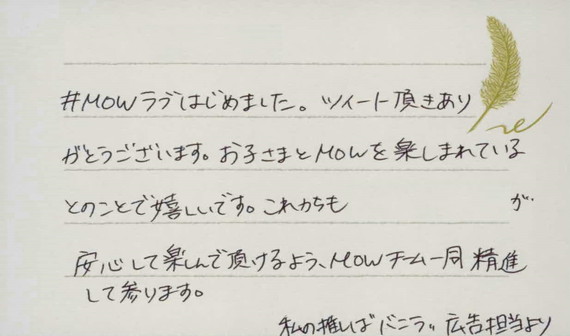 #MOWラブはじめました。ツイート頂きあり
がとうございます。お子さまとMOWを楽しまれている
とのことで嬉しいです。これからも が
安心して楽しんで頂けるよう、MOWチーム一同精進
して参ります。
私の推しはバニラ。広告担当より